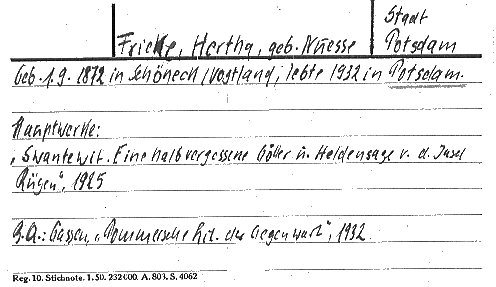 Stadt
Fricke, Hertha, geb. Nuesse Potsdam
Geb. 1.9. 1872 in Schöneck/Vogtland, lebte 1932 in Potsdam.
Hauptwerke:
„Swantewit. Eine halbvergessene Götter u. Heldensage v. d. Insel
Rügen", 1925
Gassen, „Pommersche Lit. der Gegenwart", 1932
Reg. 10. Stichnote. 1. 50. 232000. A. 803. S. 4062